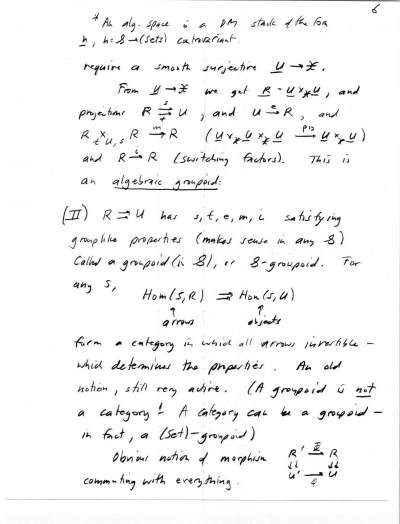 6
* An alg. space is a DM stack of the form
h, h: S → (Sets) contravariant.
require a smooth surjective U → X.
From U → X we get R = U ×_X U, and
projections R ⇉ U, and U →^e R, and
R _t×_{U,s} R →^m R (U ×_X U ×_X U →^{p13} U ×_X U)
and R →^i R (switching factors). This is
an algebraic groupoid:
(II) R ⇉ U has s, t, e, m, i satisfying
grouplike properties (makes sense in any S)
Called a groupoid (in S), or S-groupoid. For
any S,
Hom(S,R) ⇉ Hom(S,U)
↑ ↑
arrows objects
form a category in which all arrows invertible –
which determines the properties. An old
notion, still very active. (A groupoid is not
a category! A category can be a groupoid –
in fact, a (Set)-groupoid)
Obvious notion of morphism R' →^Φ R
↓↓ ↓↓
commuting with everything. U' →_φ U